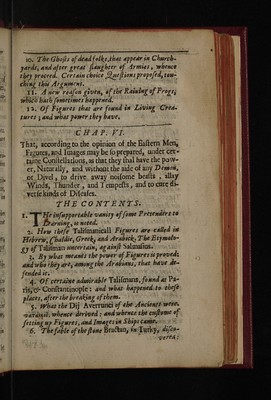 10. The Ghosts of dead folks, that appear in Church-
yards, and after great slaughter of Armies, whence
they proceed. Certain choice Questions proposed, tou-
ching this Argument.
11. A new reason given, of the Raining of Frogs;
which hath sometimes happened.
12. Of Figures that are found in Living Crea-
tures; and what power they have.
CHAP. VI.
That, according to the opinion of the Eastern Men,
Figures, and Images may be so prepared, under cer-
taine Constellations, as that they shal have the pow-
er, Naturally, and without the aide of any Demon,
or Divel, to drive away noisome beasts, allay
Winds, Thunder, and Tempests, and to cure di-
verse kinds of Diseases.
THE CONTENTS.
1. THe insupportable vanity of some Pretenders to
Learning, is noted.
2. How these Talismanicall Figures are called in
Hebrew, Chaldie, Greek, and Arabick. The Etymolo-
gy of Talisman uncertain, against Salmasius.
3. By what meanes the power of Figures is proved;
and who they are, among the Arabians, that have de-
fended it.
4. Of certaine admirable Talismans, found at Pa-
ris, & Constantinople: and what happened to those
places, after the breaking of them.
5. What the Dij Averrunci of the Ancients were.
whence derived: and whence the custome of
setting up Figures, and Images in Ships came.
6. The fable of the stone Bractan, in Turky, disco-
vered: